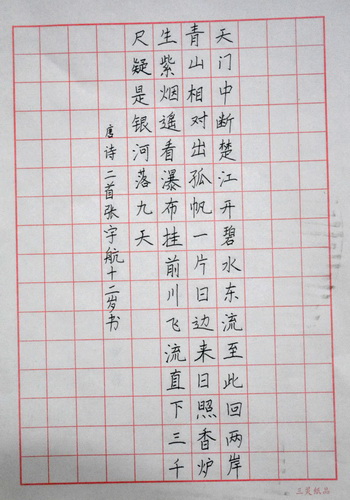 天门中断楚江开碧水东流至此回两岸
青山相对出孤帆一片日边来日照香炉
生紫烟遥看瀑布挂前川飞流直下三千
尺疑是银河落九天
唐诗二首张宇航十二岁书
纸品